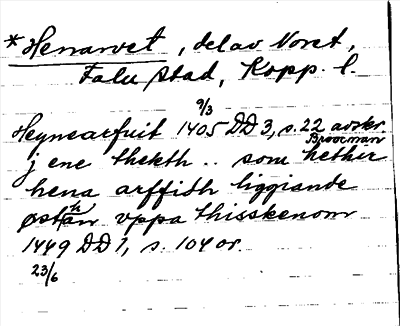 *Henarvet, del av Noret,
Falu stad, Kopp. l.
9/3
Heynearfuit 1405 DD 3, s. 22 avskr.
Brooman
j ene thekth .. som hether
hena arffidh liggiande
østan vppa thisskenom
1449 DD 1, s. 104 or.
23/6